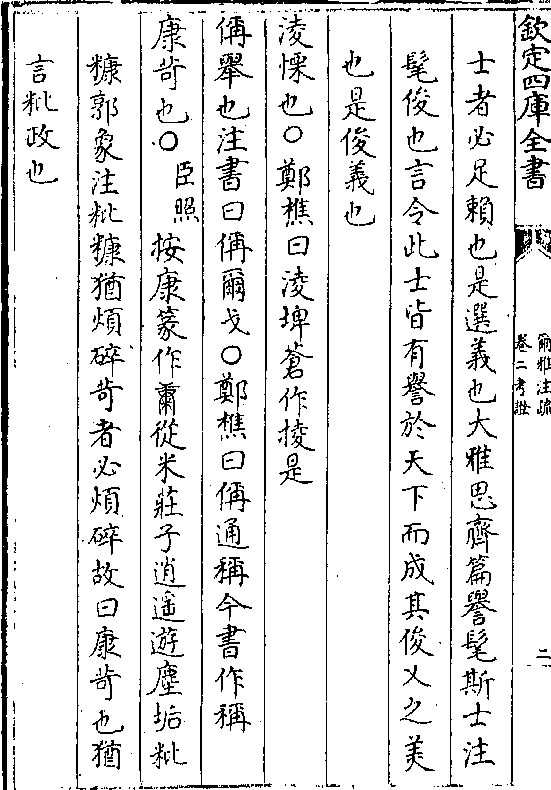 欽定四庫全書
爾雅注疏
卷二考證
二
士者必足賴也是選義也大雅思齊篇譽髦斯士注
髦俊也言令此士皆有譽於天下而成其俊乂之美
也是俊義也
淩慄也○鄭樵曰淩埤蒼作㥄是
偁舉也注書曰偁爾戈○鄭樵曰偁通稱今書作稱
康苛也○臣照按康篆作𥻦從米莊子逍遥遊塵垢粃
糠郭象注粃糠猶煩碎苛者必煩碎故曰康苛也猶
言粃政也